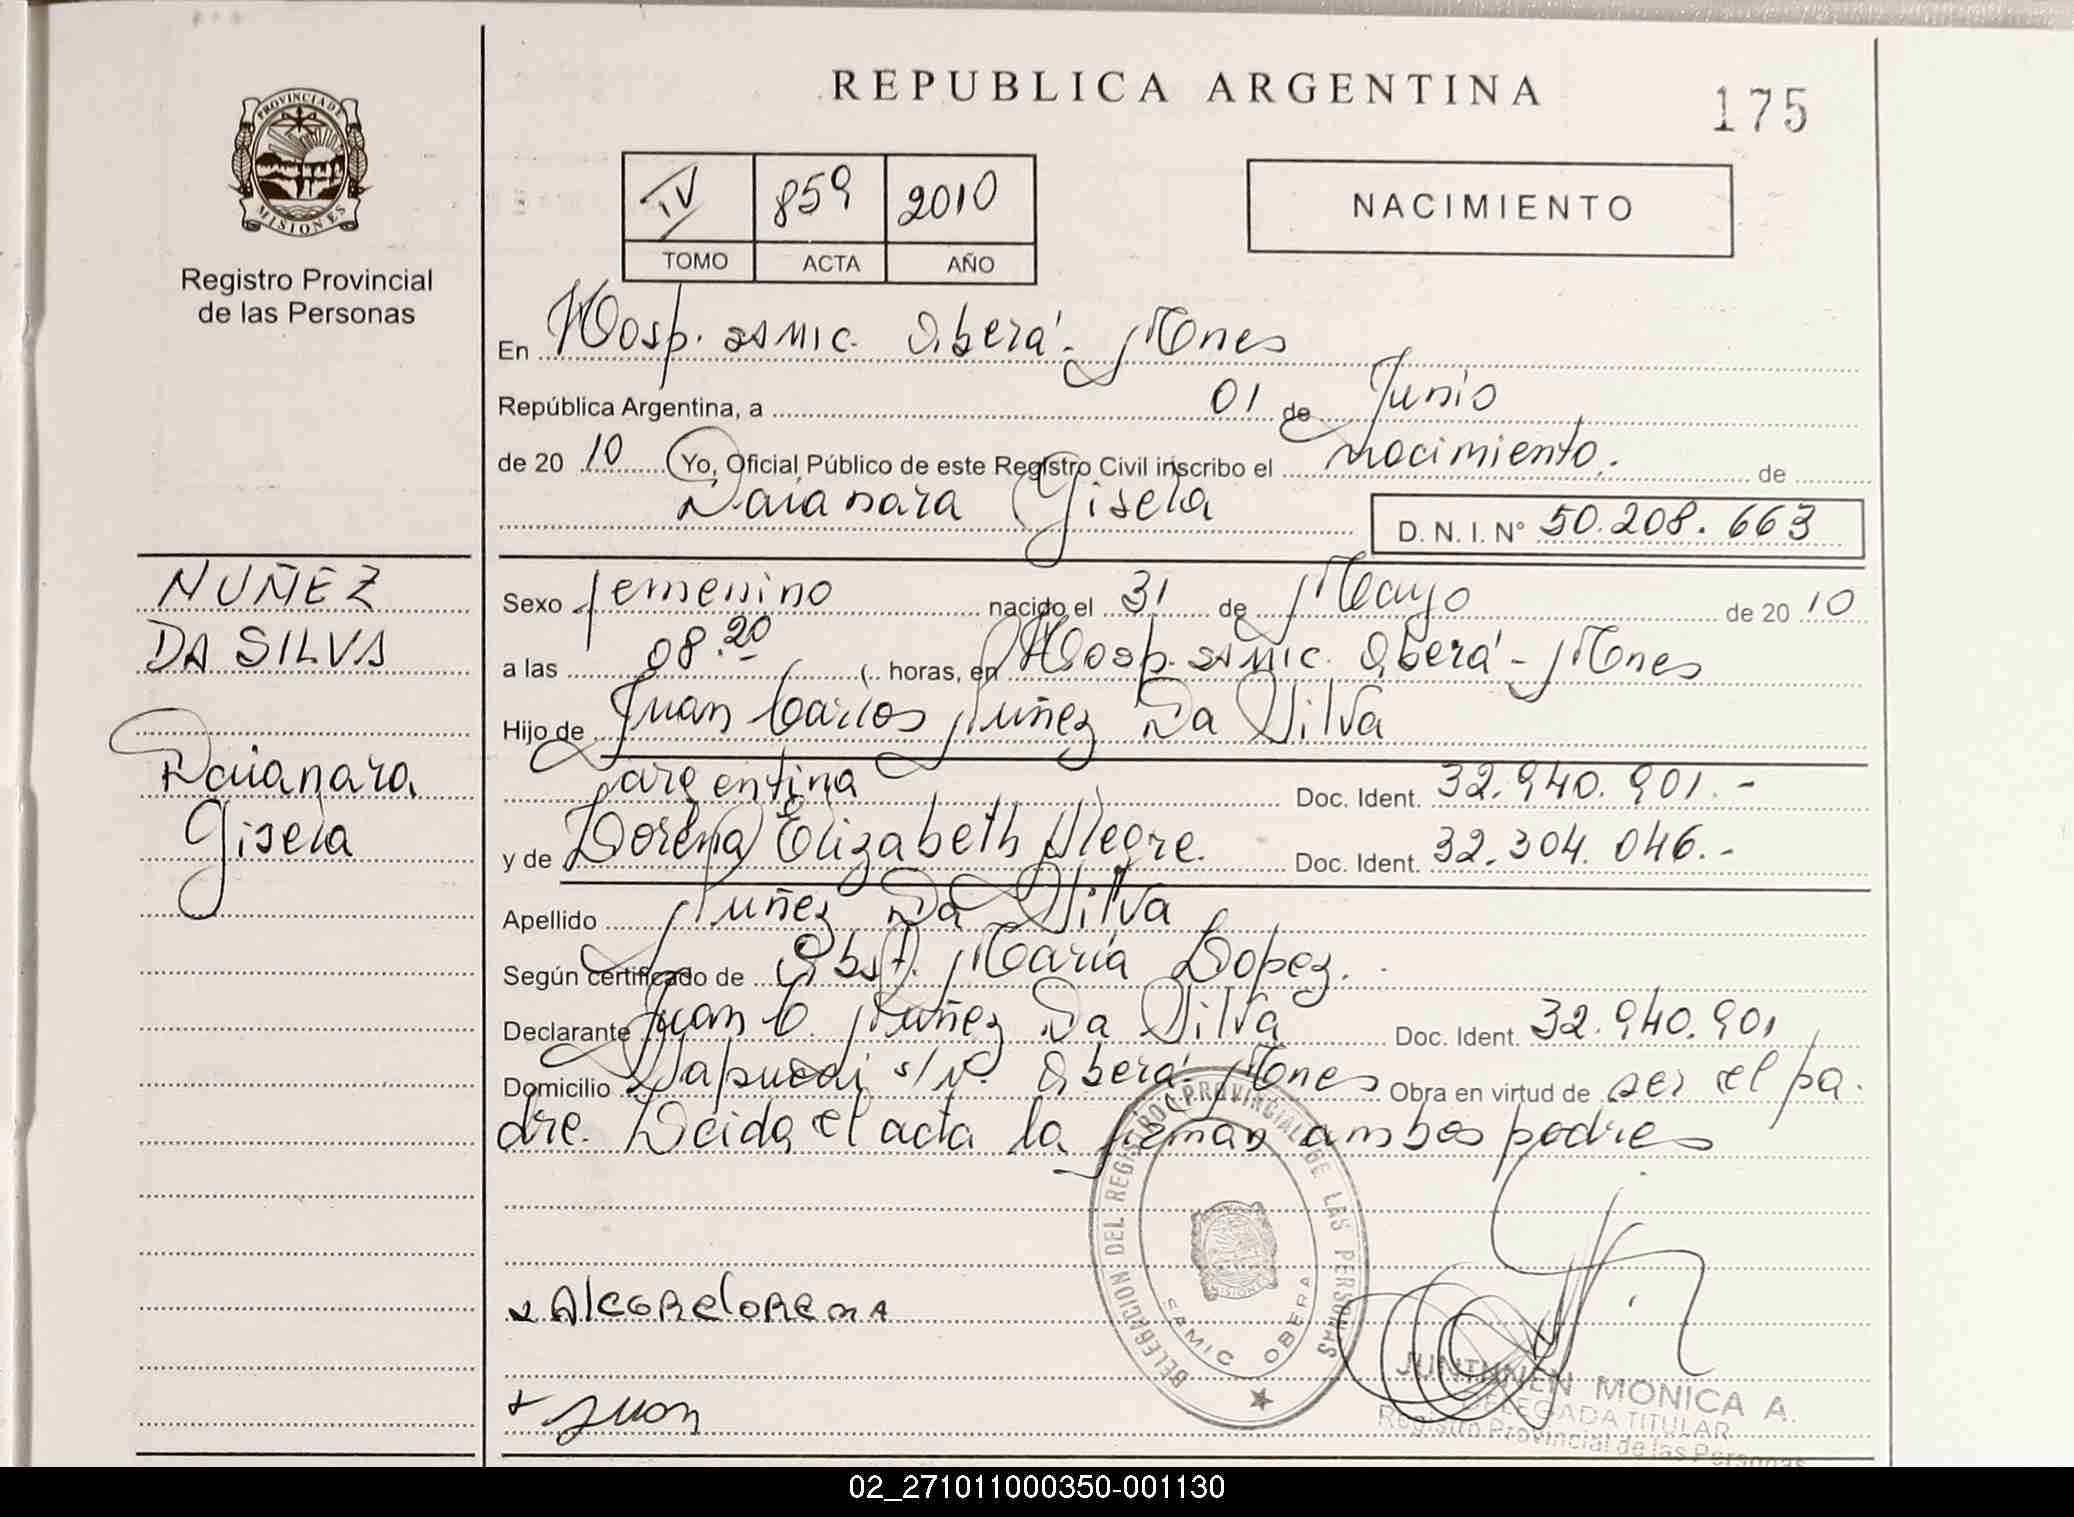 REPUBLICA ARGENTINA
175
PROVINCIA DE
MISIONES
Registro Provincial
de las Personas
IV 859 2010
TOMO ACTA AÑO
NACIMIENTO
En Hosp. SAMIC. Oberá - Mnes
República Argentina, a 01 de Junio
de 20 10 Yo, Oficial Público de este Registro Civil inscribo el nacimiento. de
Daianara Gisela
D. N. I. Nº 50.208.663
NUÑEZ
DA SILVA
Daianara
Gisela
Sexo femenino nacido el 31 de Mayo de 20 10
a las 08.20 horas, en Hosp. SAMIC. Oberá - Mnes
Hijo de Juan Carlos Nuñez Da Silva
argentina Doc. Ident. 32.940.901.-
y de Lorena Elizabeth Alegre. Doc. Ident. 32.304.046.-
Apellido Nuñez Da Silva
Según certificado de Obst. María Lopez.
Declarante Juan C. Nuñez Da Silva Doc. Ident. 32.940.901
Domicilio Sapucai s/n. Oberá - Mnes Obra en virtud de ser el pa.
dre. Leida el acta la firman ambos padres
DELEGACION DEL REGISTRO PROVINCIAL DE LAS PERSONAS
SAMIC OBERA
MISIONES
Juan
JUNTUNEN MONICA A.
DELEGADA TITULAR
Registro Provincial de las Personas
02_271011000350-001130